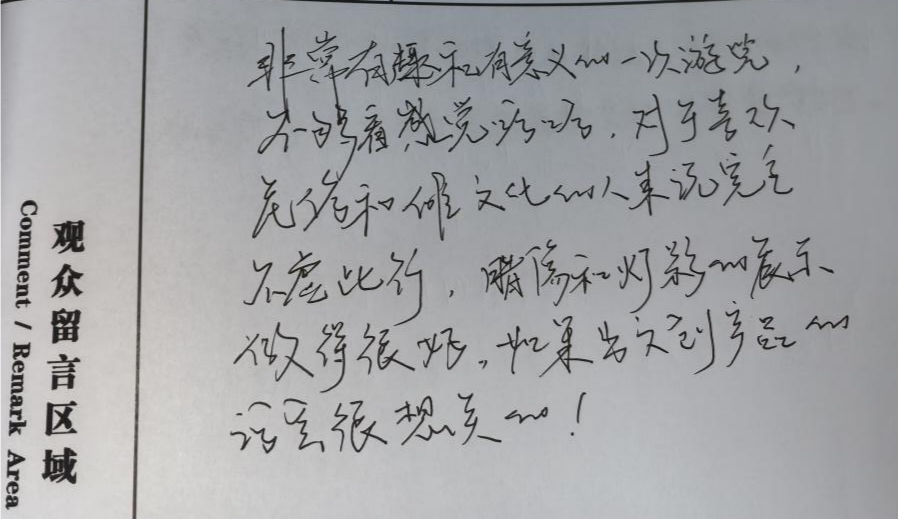 观众留言区域
Comment / Remark Area
非常有趣和有意义的一次游览,
看感觉活活,对于喜欢
民俗和傩文化的人来说完全
不虚此行,腊染和灯影的展示
做得很好。如果出文创产品的
话会很想买的!